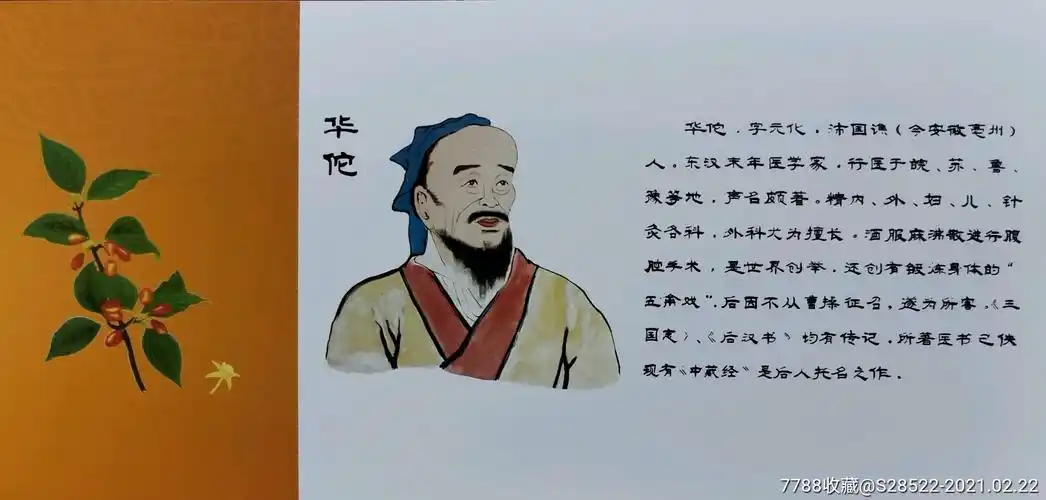 华
佗
华佗，字元化，沛国谯（今安徽亳州）
人。东汉末年医学家，行医于皖、苏、鲁、
豫等地，声名颇著。精内、外、妇、儿、针
灸各科，外科尤为擅长。酒服麻沸散进行腹
腔手术，是世界创举，还创有锻炼身体的“
五禽戏”。后因不从曹操征召，遂为所害。《三
国志》、《后汉书》均有传记，所著医书已佚
现有《中藏经》是后人托名之作。
7788收藏@S28522-2021.02.22